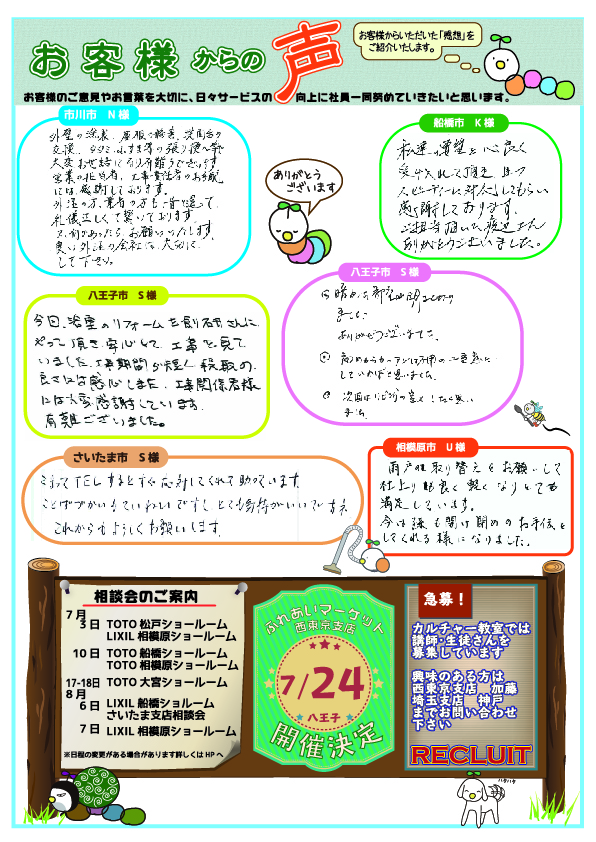 お客様からの声
お客様からいただいた「感想」を
ご紹介いたします。
お客様のご意見やお言葉を大切に、日々サービスの向上に社員一同努めていきたいと思います。
市川市 N様
外壁の塗装、
交換、タタミ、ふすま等の張り替へ等
大変お世話になり有難うございます。
営業の担当者、工事責任者のお気織
には感謝しております。
外注の方、業者の方も一皆達って
礼儀正しくて驚いております。
又何かあったら、お願いいたします。
良い外注の会社は、大切に
して下さい。
船橋市 K様
私達の要望を心良く
受け入れて頂き、且つ
スピーディーに対応してもらい
感謝しております。
ご担当頂いた渡辺さん
ありがとうございました。
ありがとう
ございます
八王子市 S様
今回、浴室のリフォームを創研さんに
やって頂き安心して、工事を見て
いました。工事期間が短く段取の
良さには感心しました。工事関係者様
には大変感謝しています。
有難ございました。
八王子市 S様
ありがとうございました。
さいたま市 S様
こまってTELするとすぐ応対してくれて助っています。
ことばづかいもていねいですし、とても気持がいいですネ
これからもよろしくお願いします。
相模原市 U様
雨戸の取り替えをお願いして
仕上りも良く軽くなりとても
満足しています。
今は孫も開け閉めのお手伝を
してくれる様になりました。
相談会のご案内
7月
3日 TOTO 松戸ショールーム
LIXIL 相模原ショールーム
10日 TOTO 船橋ショールーム
TOTO 相模原ショールーム
17-18日 TOTO 大宮ショールーム
8月
6日 LIXIL 船橋ショルーム
さいたま支店相談会
7日 LIXIL 相模原ショールーム
※日程の変更がある場合があります詳しくはHPへ
ふれあいマーケット
西東京支店
7/24
八王子
開催決定
急募！
カルチャー教室では
講師・生徒さんを
募集しています
興味のある方は
西東京支店 加藤
埼玉支店 神戸
までお問い合わせ
下さい
RECLUIT
ハタハタ